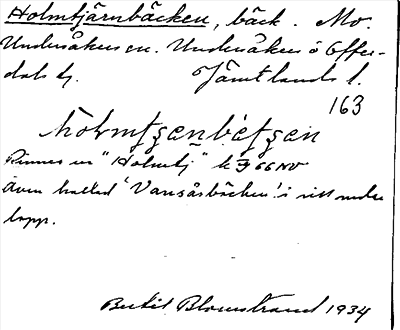 Holmtjärnbäcken, bäck. Mo.
Undersåkers sn. Undersåkers o Offer-
dals tg. Jämtlands l.
163
Rinner ur "Holmtj" k 66 NV
Även kallad "Vansåsbäcken" i sitt nedre
lopp.
Bertil Blomstrand 1934